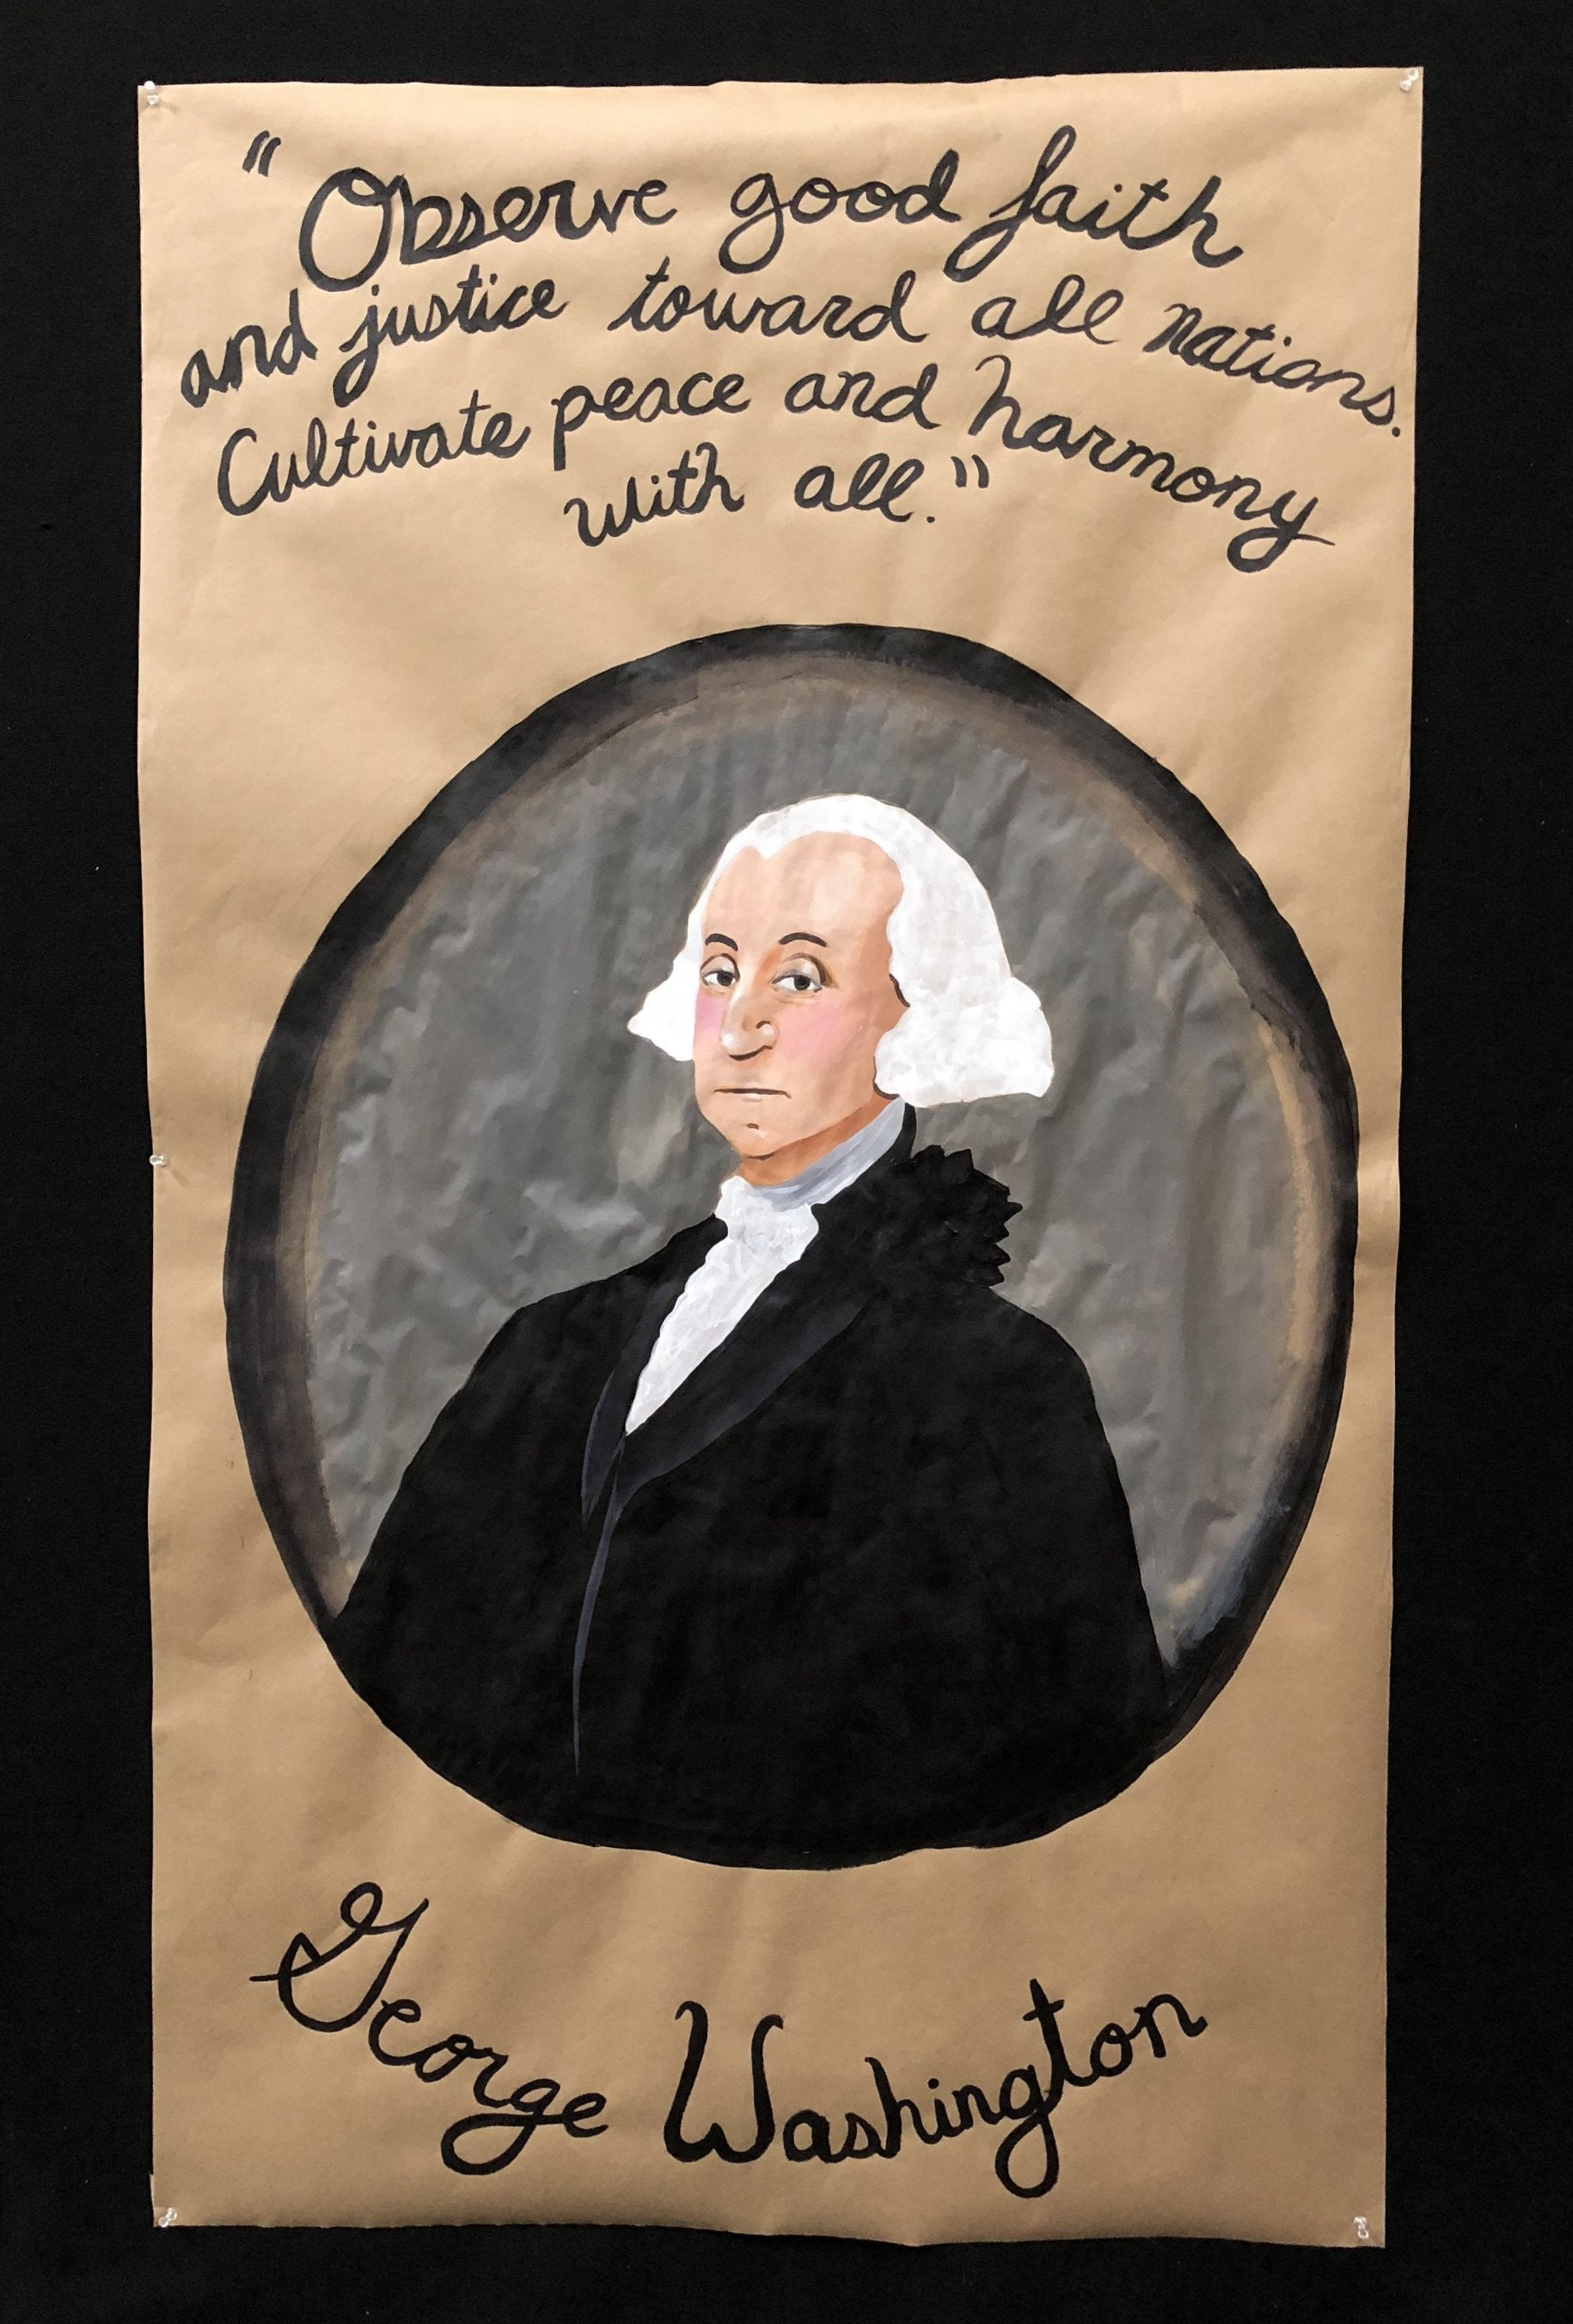 "Observe good faith
and justice toward all nations.
Cultivate peace and harmony
with all."
George Washington